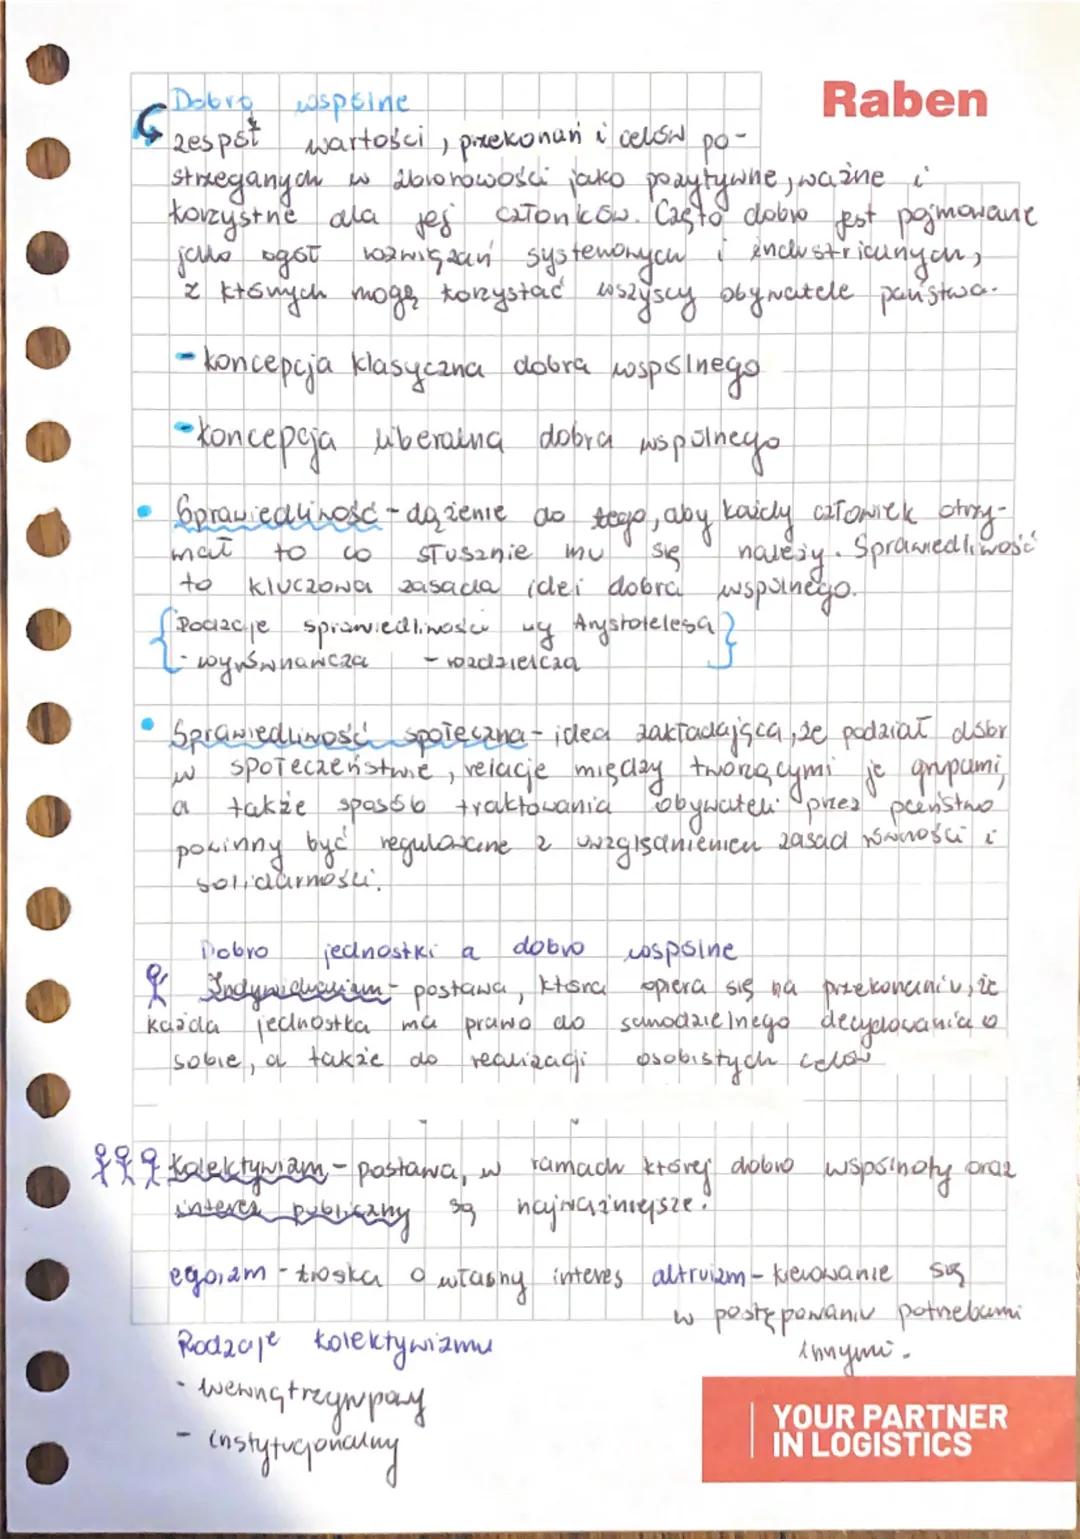 Raben
Dobro wspólne
zespół wartości, przekonań i celów po-
strzeganych w zbiorowości jako pozytywne, ważne i
korzystne dla jej członków. Często dobro jest pojmowane
jako ogół rozwiązań systemowych i industrialnych,
z których mogą korzystać wszyscy obywatele państwa.
- koncepcja klasyczna dobra wspólnego
- koncepcja liberalna dobra wspólnego
• Sprawiedliwość - dążenie do tego, aby każdy człowiek otrzy-
mał to co słusznie mu się należy. Sprawiedliwość
to kluczowa zasada idei dobra wspólnego.
{Rodzaje sprawiedliwości wg Arystotelesa}
- wyrównawcza - rozdzielcza
• Sprawiedliwość społeczna - idea zakładająca, że podział dóbr
w społeczeństwie, relacje między tworzącymi je grupami,
a także sposób traktowania obywateli przez państwo
powinny być regulowane z uwzględnieniem zasad równości i
solidarności.
Dobro jednostki a dobro wspólne
Indywidualizm - postawa, która opiera się na przekonaniu, że
każda jednostka ma prawo do samodzielnego decydowania o
sobie, a także do realizacji osobistych celów
Kolektywizm - postawa, w ramach której dobro wspólnoty oraz
interes publiczny są najważniejsze.
egoizm - troska o własny interes altruizm - kierowanie się
w postępowaniu potrzebami
innymi.
Rodzaje kolektywizmu
- wewnątrzgrupowy
- instytucjonalny
YOUR PARTNER
IN LOGISTICS